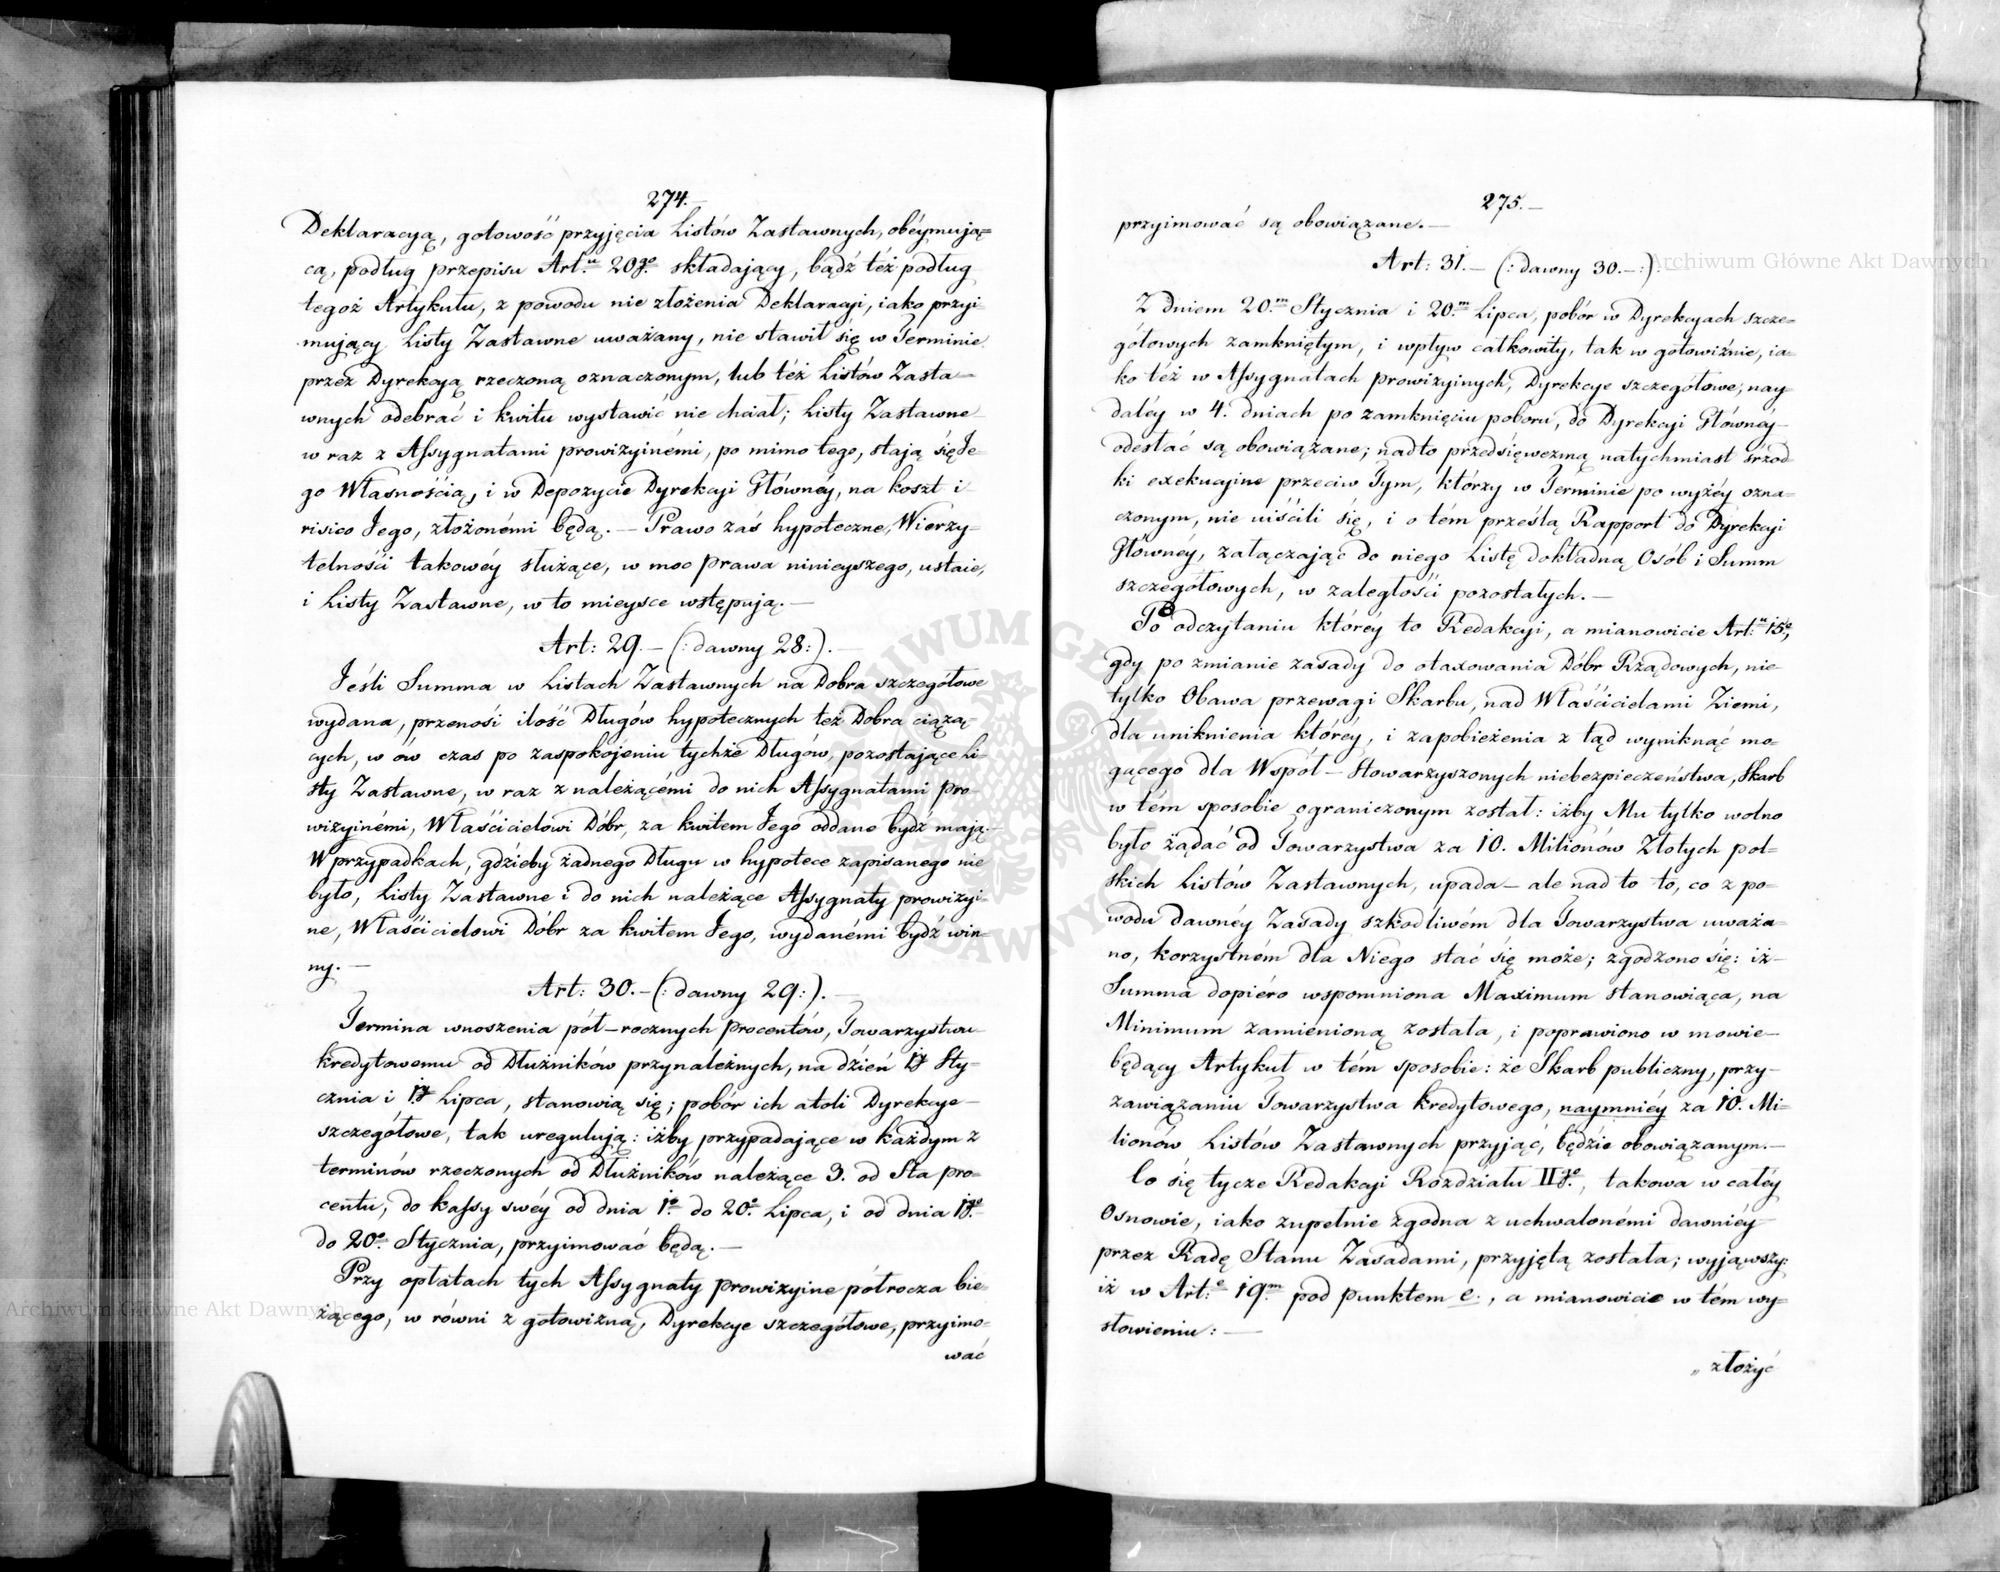 274.
Deklaracyą, gotowość przyjęcia Listów Zastawnych, obéymują=
cą, podług przepisu Art.u 20go. składający, bądź téż podług
tegoż Artykułu, z powodu nie złożenia Deklaracyi, iako przyi-
mujący Listy Zastawne uważany, nie stawił się w Terminie
przez Dyrekcyą rzeczoną oznaczonym, lub téż Listów Zasta=
wnych odebrać i kwitu wystawić nie chciał; Listy Zastawne
w raz z Assygnatami prowizyinémi, po mimo tego, stają się Je-
go Własnością, i w Depozycie Dyrekcyi Głównéy, na koszt i
risico Jego, złożonémi będą. — Prawo zaś hypoteczne, Wierzy-
telności takowéy służące, w moc prawa ninieyszego, ustaie,
i Listy Zastawne, w to mieysce wstępują. —
Art: 29. — (: dawny 28:). —
Jeśli Summa w Listach Zastawnych na Dobra szczegółowe
wydana, przenosi ilość Długów hypotecznych też Dobra ciążą-
cych, w ów czas po zaspokojeniu tychże Długów, pozostające Li-
sty Zastawne, w raz z należącémi do nich Assygnatami pro-
wizyinémi, Właścicielowi Dóbr, za kwitem Jego oddane bydź mają. —
W przypadkach, gdzieby żadnego Długu w hypotece zapisanego nie
było, Listy Zastawne i do nich należące Assygnaty prowizyi-
ne, Właścicielowi Dóbr za kwitem Jego, wydanémi bydź win-
ny. —
Art: 30. — (: dawny 29:). —
Termina wnoszenia pół-rocznych procentów, Towarzystwu
kredytowemu od Dłużników przynależnych, na dzień 1y Sty-
cznia i 1y Lipca, stanowią się; pobór ich atoli Dyrekcye
szczegółowe, tak uregulują: iżby przypadające w każdym z
terminów rzeczonych od Dłużników należące 3. od Sta pro-
centu, do kassy swéy od dnia 1o do 20o. Lipca, i od dnia 1go
do 20o. Stycznia, przyimować będą. —
Przy opłatach tych Assygnaty prowizyine półrocza bie-
żącego, w równi z gotowizną, Dyrekcye szczegółowe, przyimo-
wać
275. —
przyimować są obowiązane. —
Art: 31. — (: dawny 30. — :). —
Z dniem 20.m Stycznia i 20.m Lipca, pobór w Dyrekcyach szcze-
gółowych zamkniętym, i wpływ całkowity, tak w gotowiźnie, ia-
ko téż w Assygnatach prowizyinych, Dyrekcye szczegółowe, nay
daléy w 4. dniach po zamknięciu poboru, do Dyrekcyi Głównéy
odesłać są obowiązane; nadto przedsięwezmą natychmiast śrzod
ki exekucyine przeciw Tym, którzy w Terminie po wyżéy ozna-
czonym, nie uiścili się, i o tém prześlą Rapport do Dyrekcyi
Głównéy, załączając do niego Listę dokładną Osób i Summ
szczegółowych, w zaległości pozostałych. —
Po odczytaniu któréy to Redakcyi, a mianowicie Art:u 15o,
gdy po zmianie zasady do otaxowania Dóbr Rządowych, nie
tylko Obawa przewagi Skarbu, nad Właścicielami Ziemi,
dla uniknienia któréy, i zapobieżenia z tąd wyniknąć mo-
gącego dla Współ-Stowarzyszonych niebezpieczeństwa, Skarb
w tém sposobie ograniczonym został: iżby Mu tylko wolno
było żądać od Towarzystwa za 10. Milionów Złotych pol-
skich Listów Zastawnych, upada — ale nad to to, co z po-
wodu dawnéy Zasady szkodliwém dla Towarzystwa uważa-
no, korzystném dla Niego stać się może; zgodzono się: iż
Summa dopiéro wspomniona Maximum stanowiąca, na
Minimum zamienioną została, i poprawiono w mowie
będący Artykuł w tém sposobie: że Skarb publiczny, przy
zawiązaniu Towarzystwa kredytowego, naymniéy za 10. Mi-
lionów Listów Zastawnych przyjąć, będzie obowiązanym. —
Co się tycze Redakcyi Rozdziału IIgo., takowa w całéy
Osnowie, iako zupełnie zgodna z uchwalonémi dawniéy
przez Radę Stanu Zasadami, przyjętą została; wyjąwszy:
iż w Art:e 19m pod punktem e., a mianowicie w tém wy-
słowieniu: —
„ złożyć
Archiwum Główne Akt Dawnych
Archiwum Główne Akt Dawnych
ARCHIWUM GŁÓWNE AKT DAWNYCH